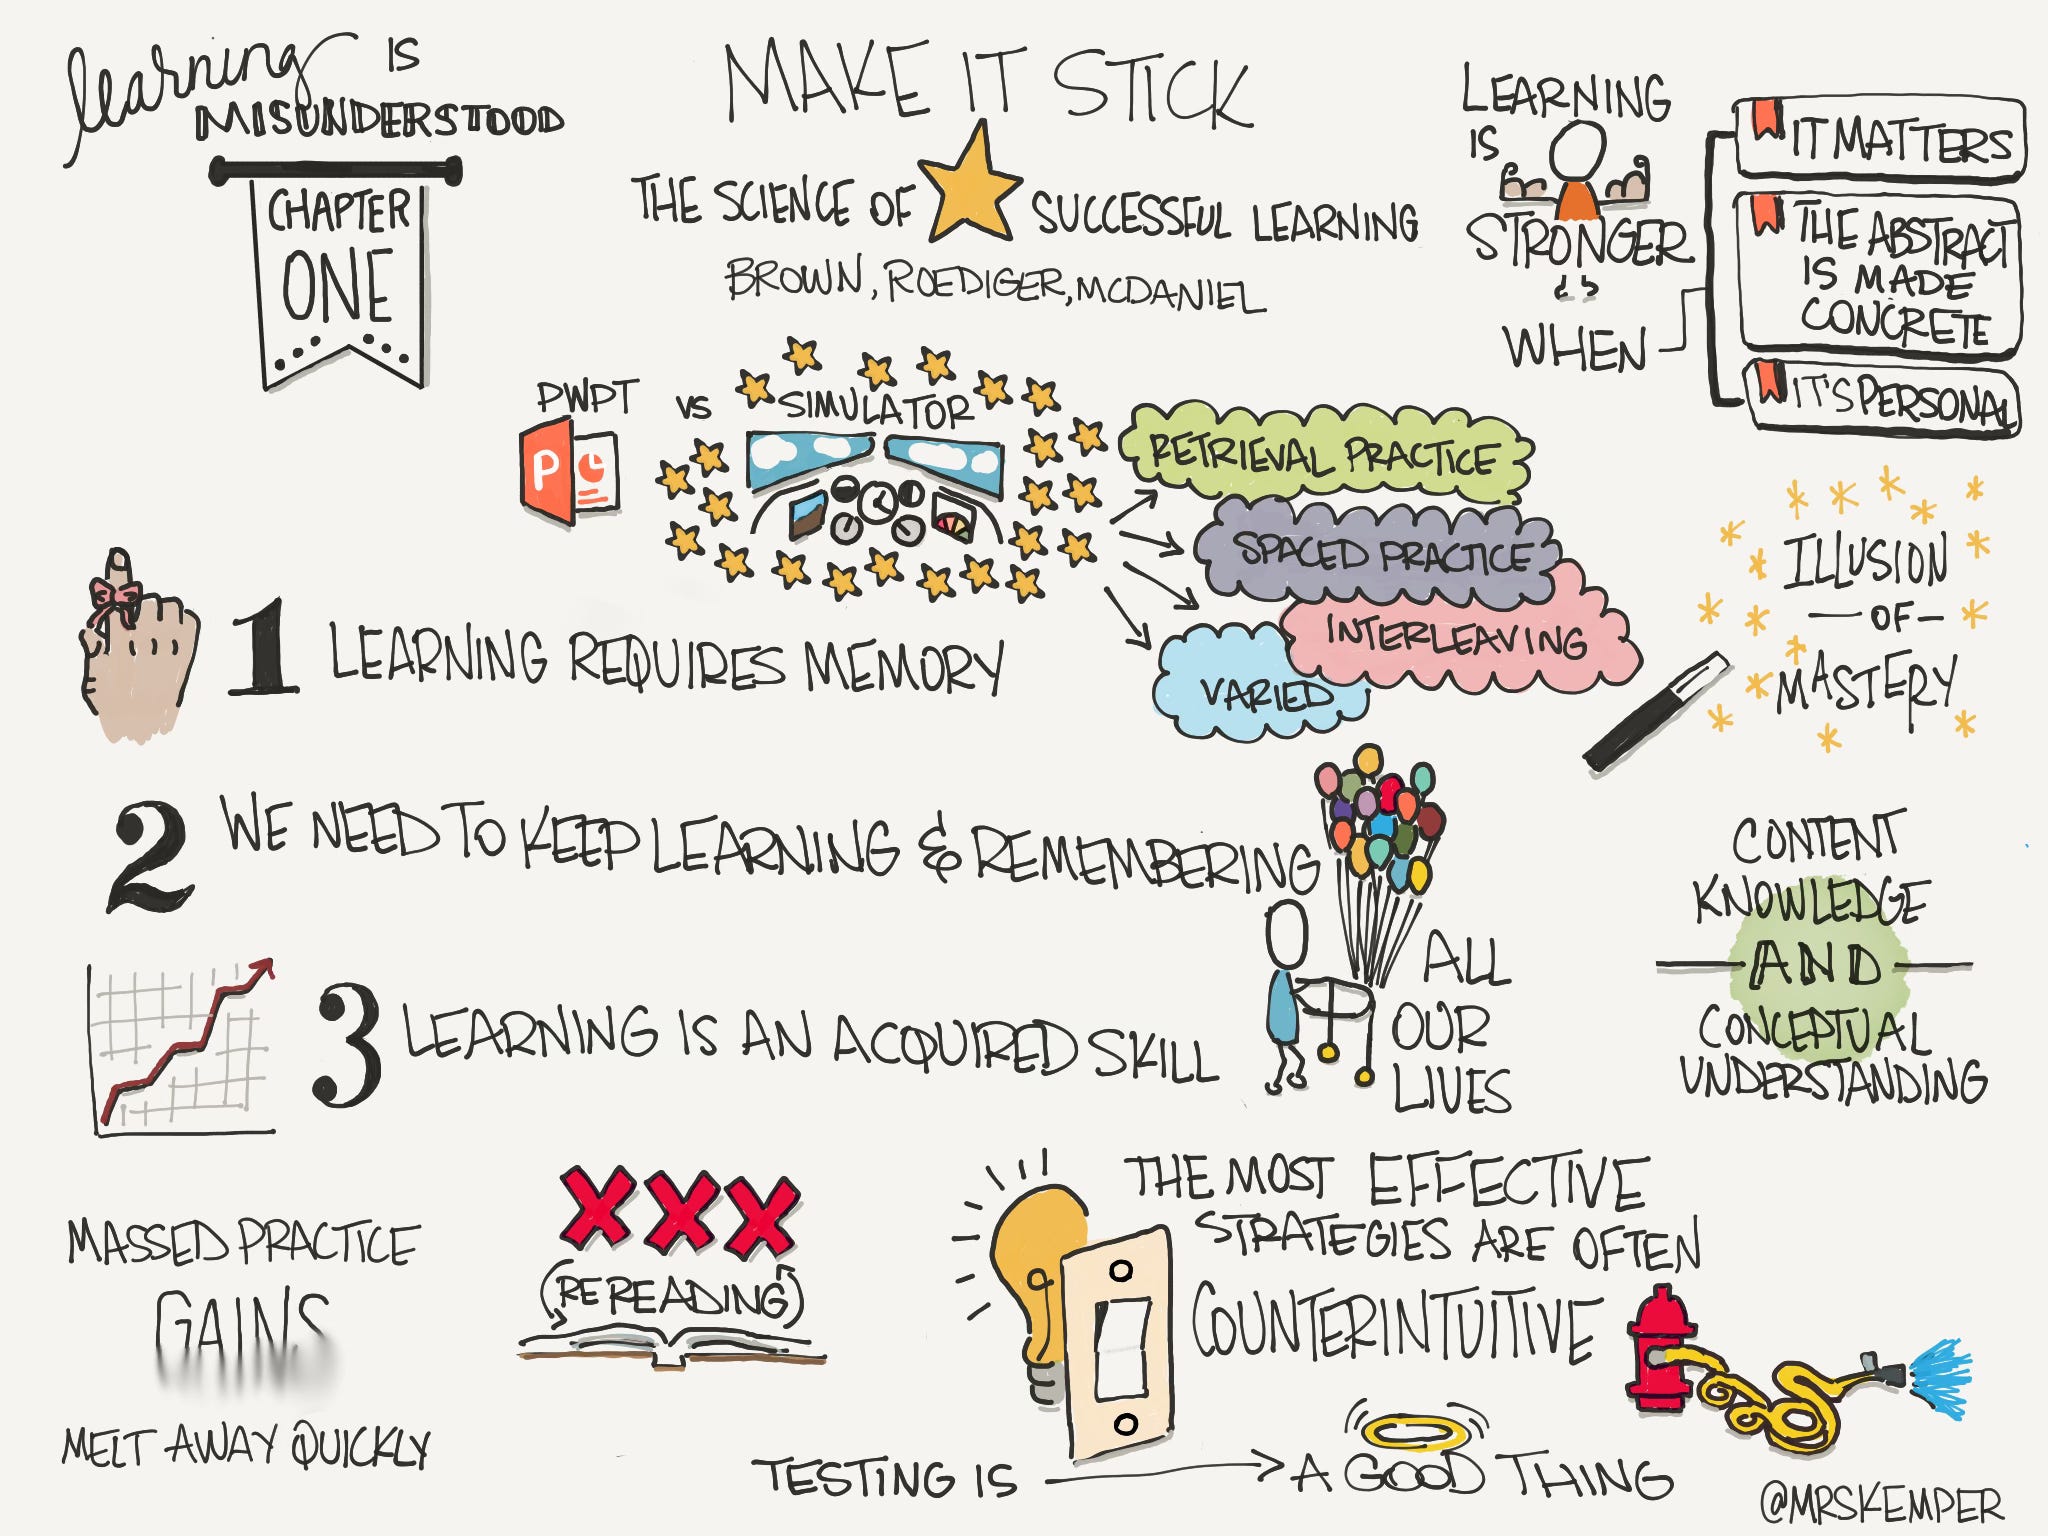 learning IS
MISUNDERSTOOD
CHAPTER
ONE
MAKE IT STICK
THE SCIENCE OF SUCCESSFUL LEARNING
BROWN, ROEDIGER, MCDANIEL
LEARNING
IS
STRONGER
WHEN
IT MATTERS
THE ABSTRACT
IS MADE
CONCRETE
IT'S PERSONAL
PWPT vs SIMULATOR
P
RETRIEVAL PRACTICE
SPACED PRACTICE
INTERLEAVING
VARIED
ILLUSION
-OF-
MASTERY
1 LEARNING REQUIRES MEMORY
2 WE NEED TO KEEP LEARNING & REMEMBERING
ALL
OUR
LIVES
3 LEARNING IS AN ACQUIRED SKILL
CONTENT
KNOWLEDGE
AND
CONCEPTUAL
UNDERSTANDING
MASSED PRACTICE
GAINS
MELT AWAY QUICKLY
XXX
(REREADING)
THE MOST EFFECTIVE
STRATEGIES ARE OFTEN
COUNTERINTUITIVE
TESTING IS → A GOOD THING
@MRSKEMPER